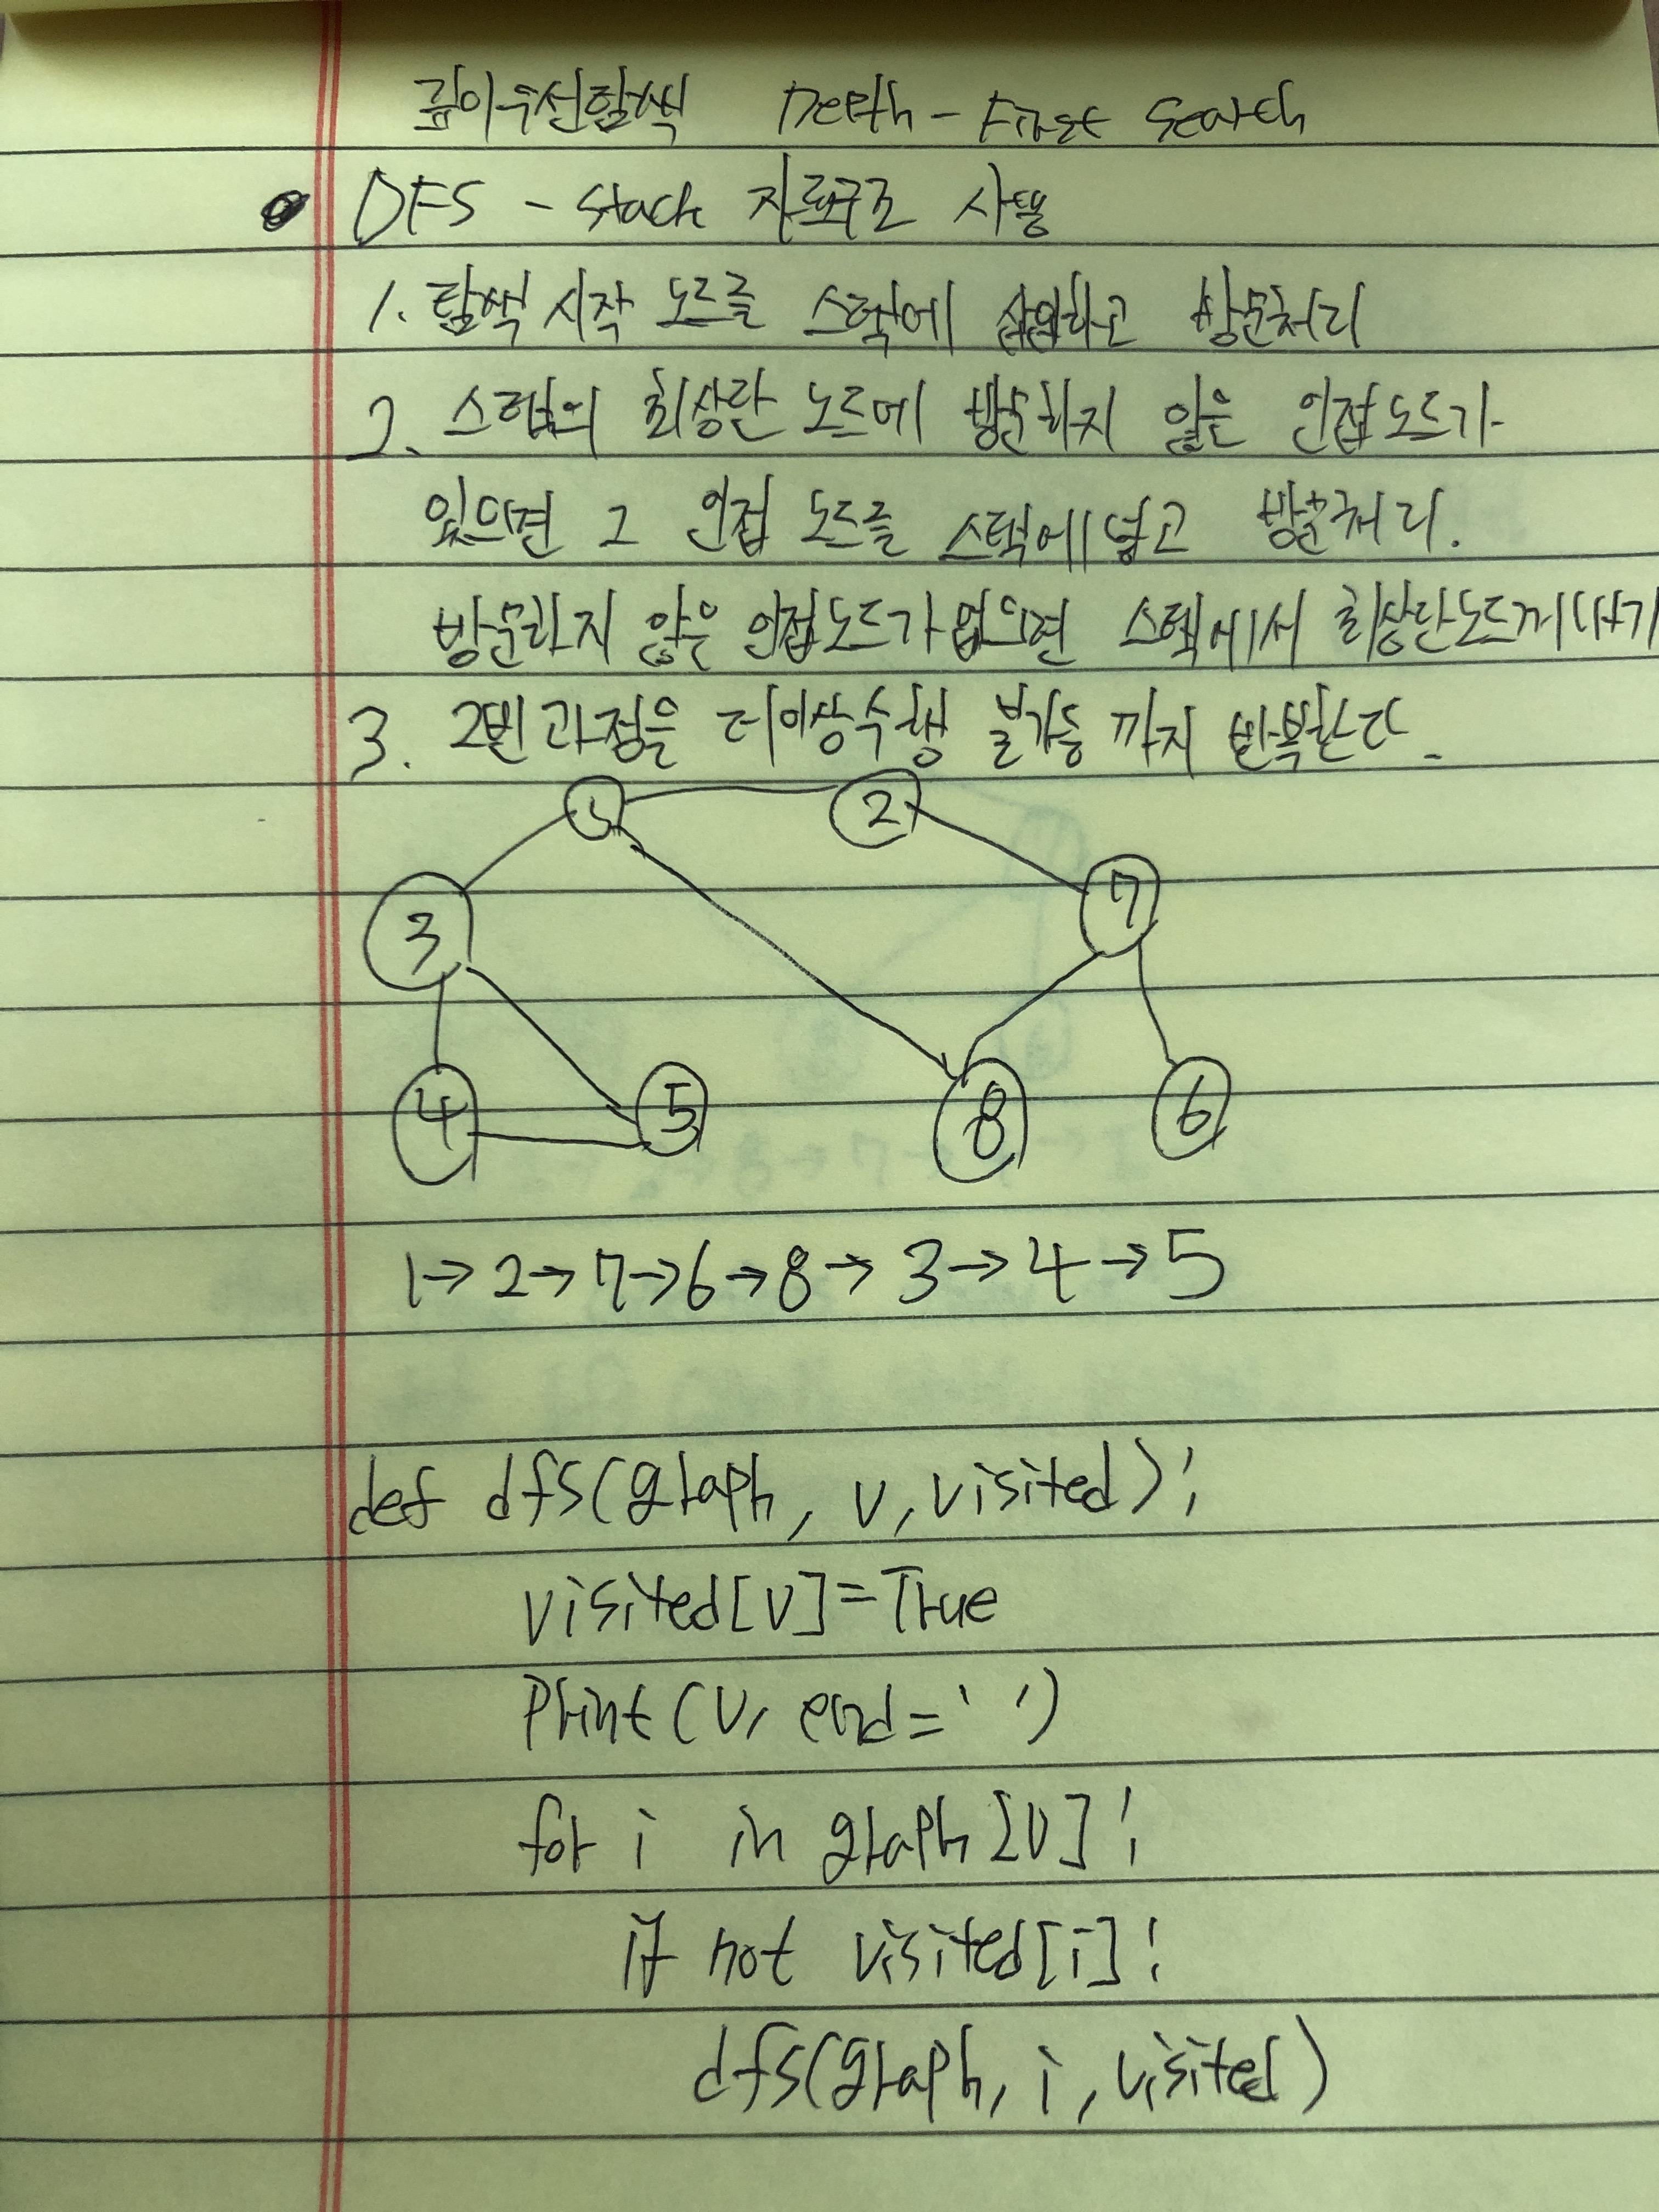 깊이우선탐색 Depth-First Search
DFS - Stack 자료구조 사용
1. 탐색 시작 노드를 스택에 삽입하고 방문처리
2. 스택의 최상단 노드에 방문하지 않은 인접노드가
있으면 그 인접 노드를 스택에 넣고 방문처리.
방문하지 않은 인접노드가 없으면 스택에서 최상단노드꺼내기
3. 2번 과정을 더이상 수행 불가능 까지 반복한다.
1 2
7
3
4 5 8 6
1→2→7→6→8→3→4→5
def dfs(graph, v, visited):
visited[v]=True
Print(v, end=' ')
for i in graph[v]:
if not visited[i]:
dfs(graph, i, visited)